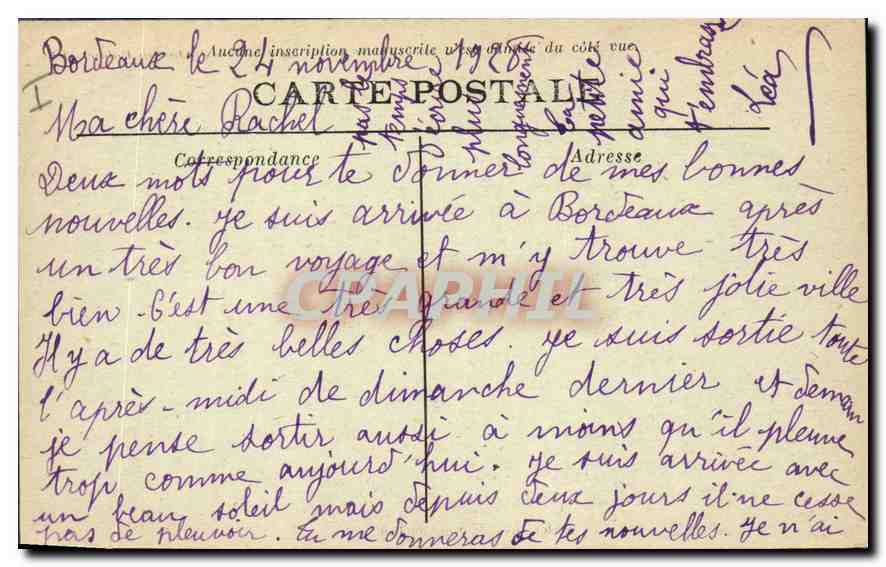 Bordeaux le 24 novembre 1926
Aucune inscription manuscrite n'est admise du côté vue
CARTE POSTALE
Ma chère Rachel
Correspondance
Adresse
Deux mots pour te donner de mes bonnes
nouvelles. Je suis arrivée à Bordeaux après
un très bon voyage et m'y trouve très
bien. C'est une très grande et très jolie ville
Il y a de très belles choses. Je suis sortie toute
l'après-midi de dimanche dernier et demain
je pense sortir aussi à moins qu'il pleuve
trop comme aujourd'hui. Je suis arrivée avec
un beau soleil mais depuis deux jours il ne cesse
pas de pleuvoir. Tu me donneras de tes nouvelles. Je n'ai
pas le
temps
d'écrire
plus
longuement
Ta
petite
amie
qui
t'embrasse
Léa
CPAPHIL
I